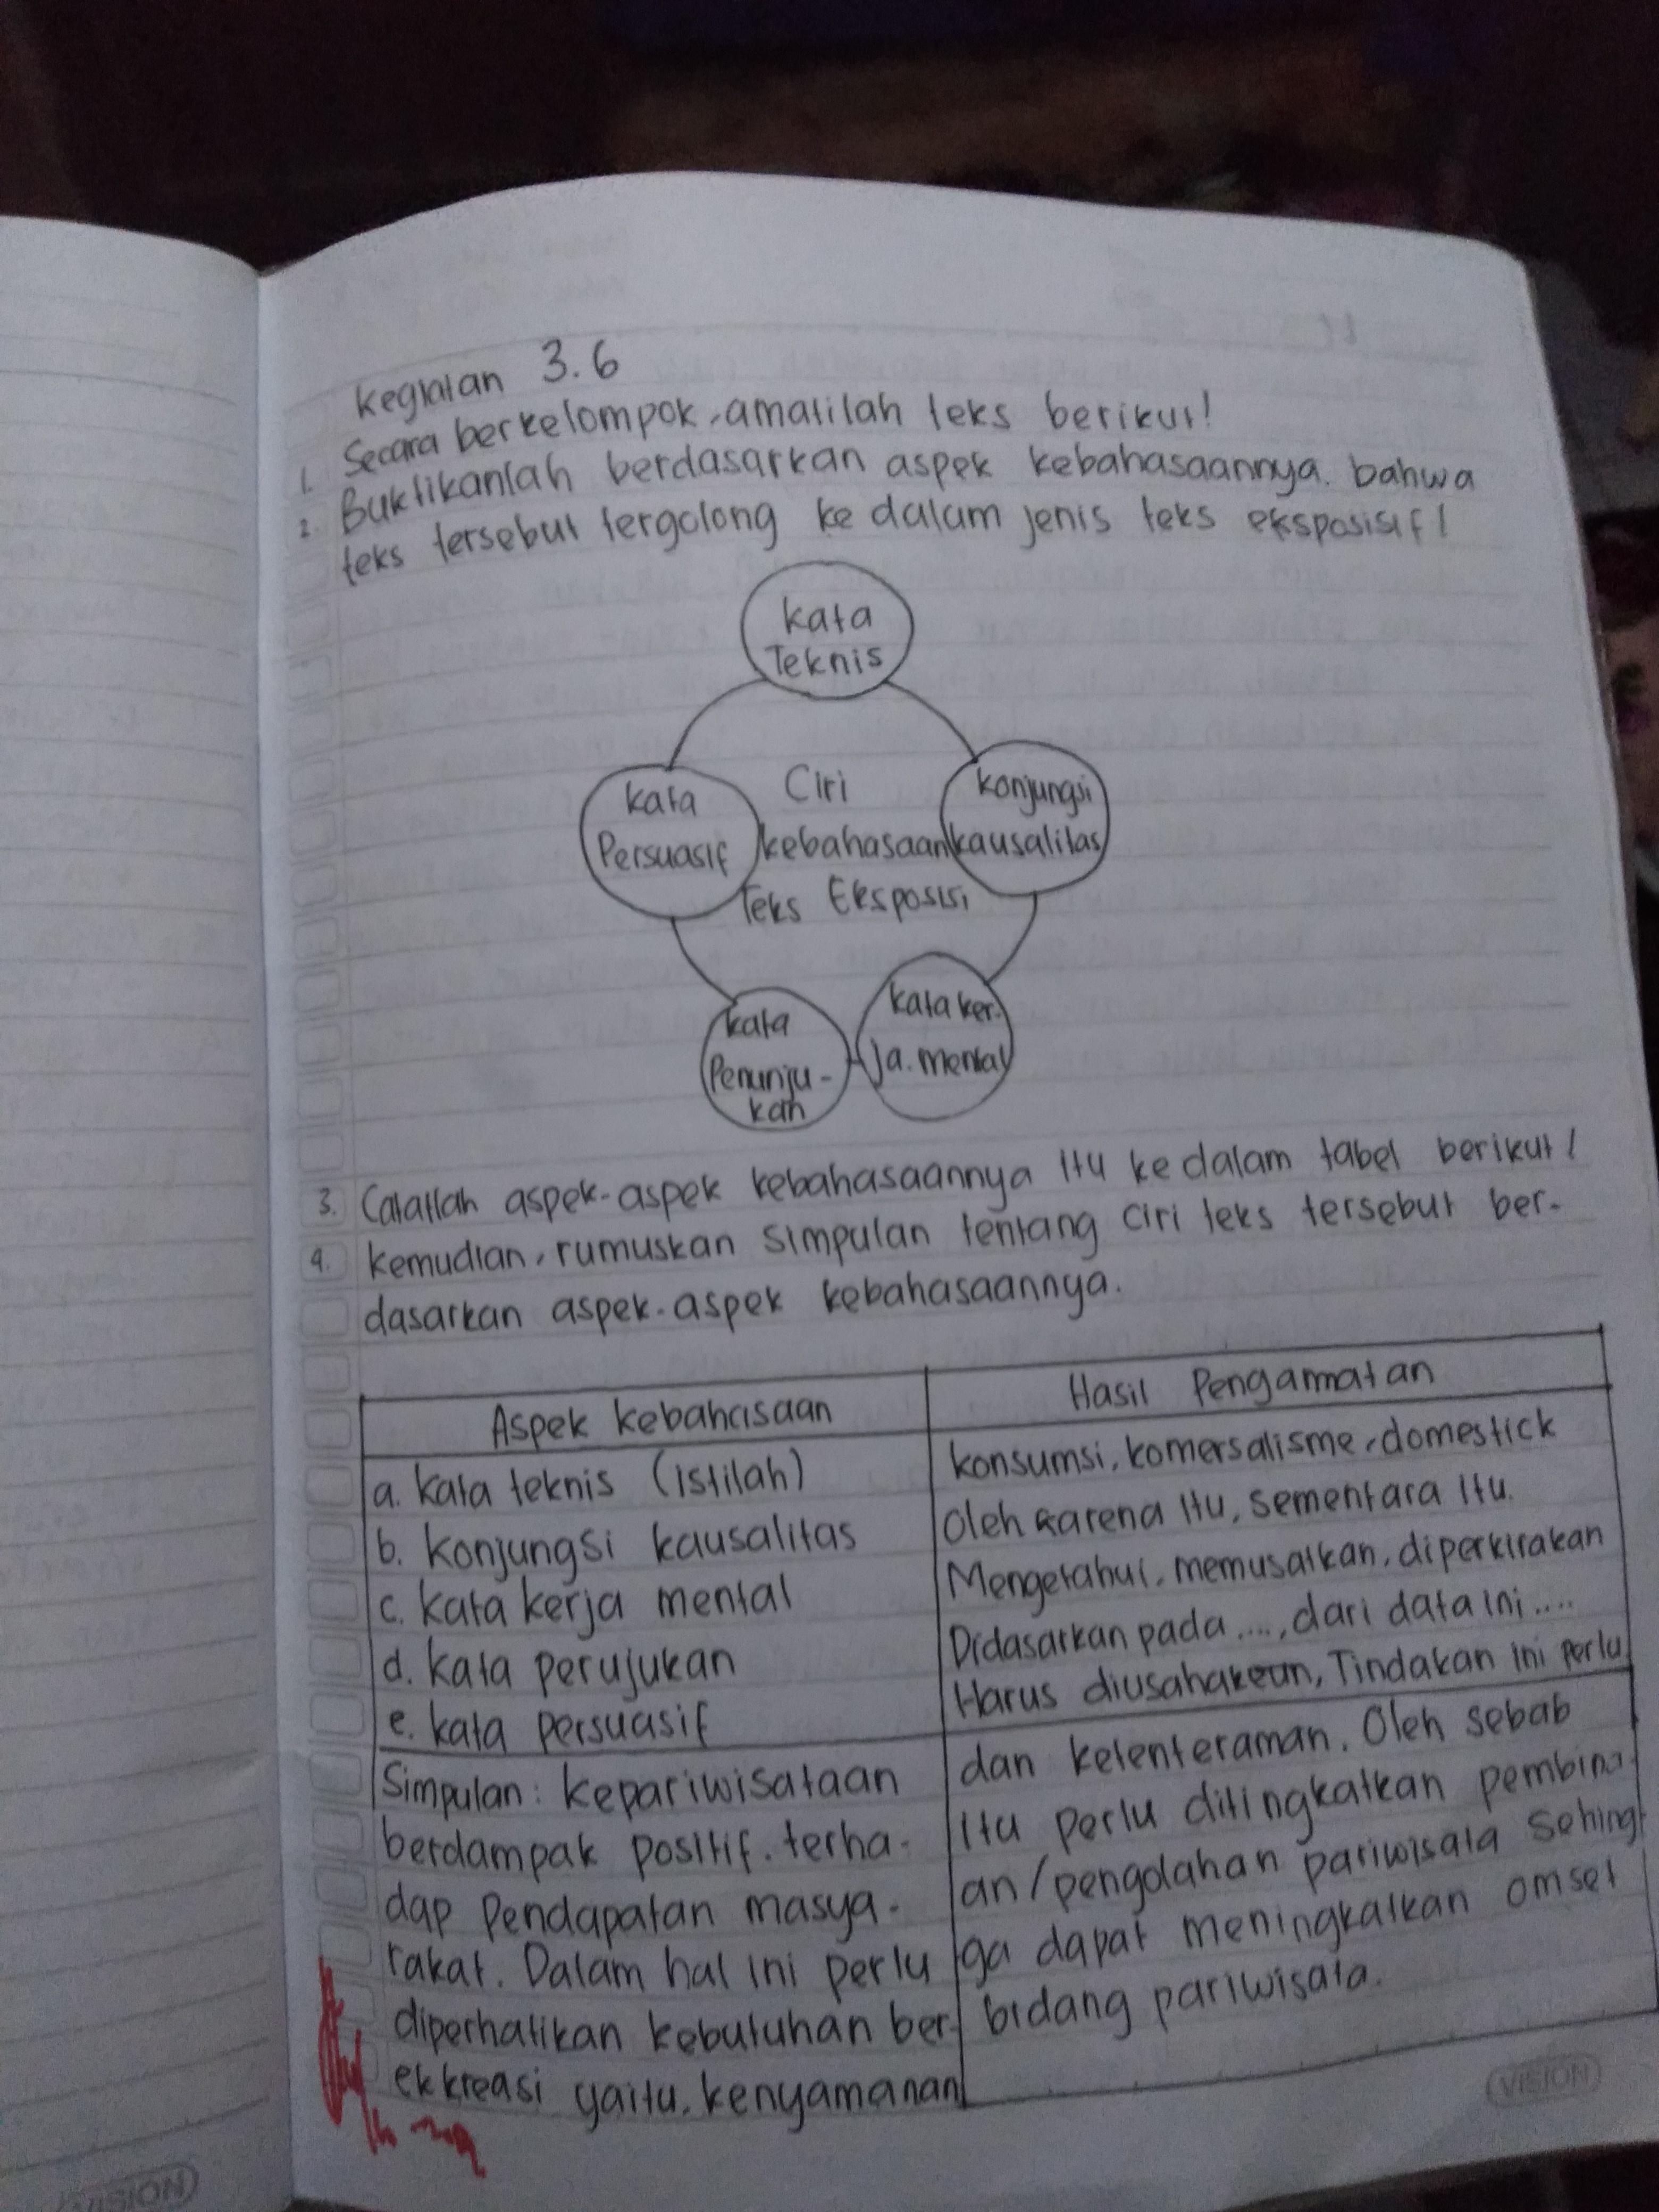 kegiatan 3.6
1. Secara berkelompok, amatilah teks berikut!
2. Buktikanlah berdasarkan aspek kebahasaannya. bahwa
teks tersebut tergolong ke dalam jenis teks eksposisif!
kata
Teknis
kata
Persuasif
Ciri
kebahasaan
Teks Eksposisi
konjungsi
kausalitas
kata
Penunju-
kan
kata ker-
ja. mental
3. Catatlah aspek-aspek kebahasaannya itu ke dalam tabel berikut!
4. kemudian, rumuskan simpulan tentang ciri teks tersebut ber-
dasarkan aspek-aspek kebahasaannya.
Aspek kebahasaan
Hasil Pengamatan
a. kata teknis (istilah)
konsumsi, komersalisme, domestick
b. konjungsi kausalitas
Oleh karena itu, sementara itu.
c. kata kerja mental
Mengetahui, memusatkan, diperkirakan
d. kata perujukan
Didasarkan pada ...., dari data ini ....
e. kata persuasif
Harus diusahakean, Tindakan ini perlu
Simpulan: kepariwisataan
berdampak positif. terha-
dap Pendapatan masya-
rakat. Dalam hal ini perlu
diperhatikan kebutuhan ber-
ekkreasi yaitu, kenyamanan
dan ketenteraman. Oleh sebab
itu perlu ditingkatkan pembina-
an/pengolahan pariwisata sehing
ga dapat meningkatkan omset
bidang pariwisata.
VISION
VISION